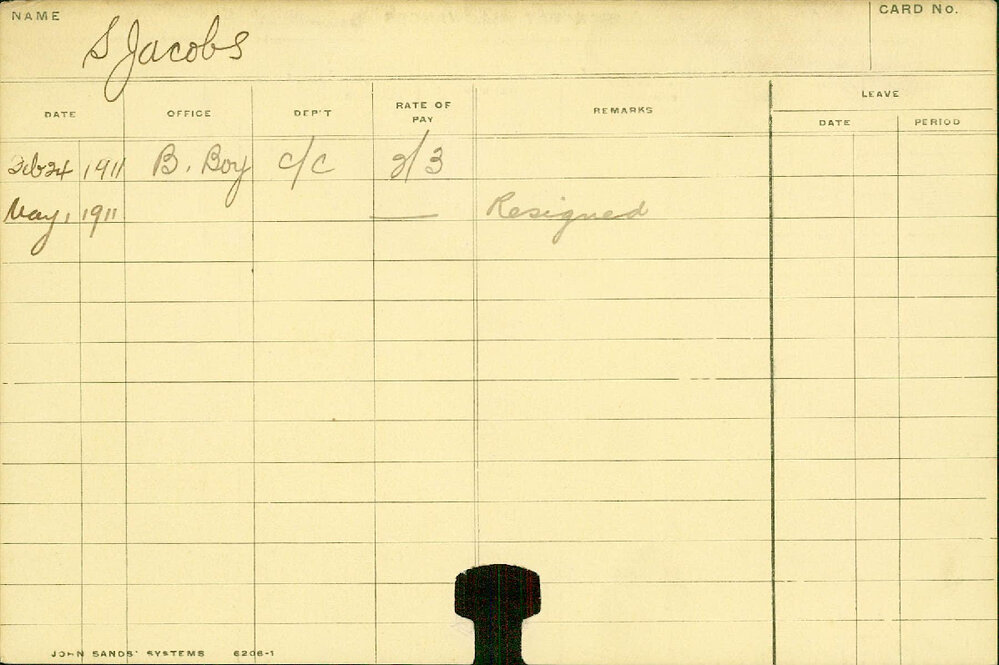 NAME
CARD No.
S Jacobs
LEAVE
DATE OFFICE DEP'T RATE OF PAY REMARKS DATE PERIOD
Feb 24 1911 B. Boy C/C 2/3
May, 1911 — Resigned
JOHN SANDS' SYSTEMS 6206-1